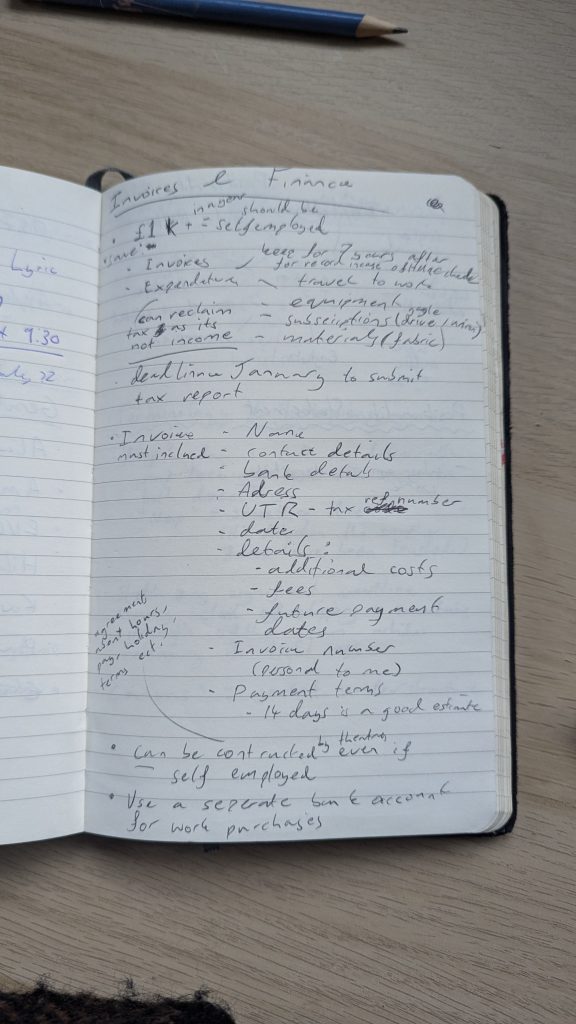 Lyric
9.30
22
Invoices & Finance
in a year should be
• £1 k + = self employed
• save:
• Invoices keep for 7 years after
for record incase of
• Expenditure - travel to work
Can reclaim - equipment
tax as its - subscriptions (google drive /
not income - materials (fabric)
• deadline January to submit
tax report
• Invoice - Name
must includ - contact details
- bank details
- Adress
- UTR - tax ref number
- date
- details:
- additional costs
- fees
- future payment
dates
- Invoice number
(personal to me)
- Payment terms
- 14 days is a good estimate
agreement
hours,
pay, holiday,
terms ect.
• Can be contracted by theatres even if
self employed
• Use a seperate bank account
for work purchases